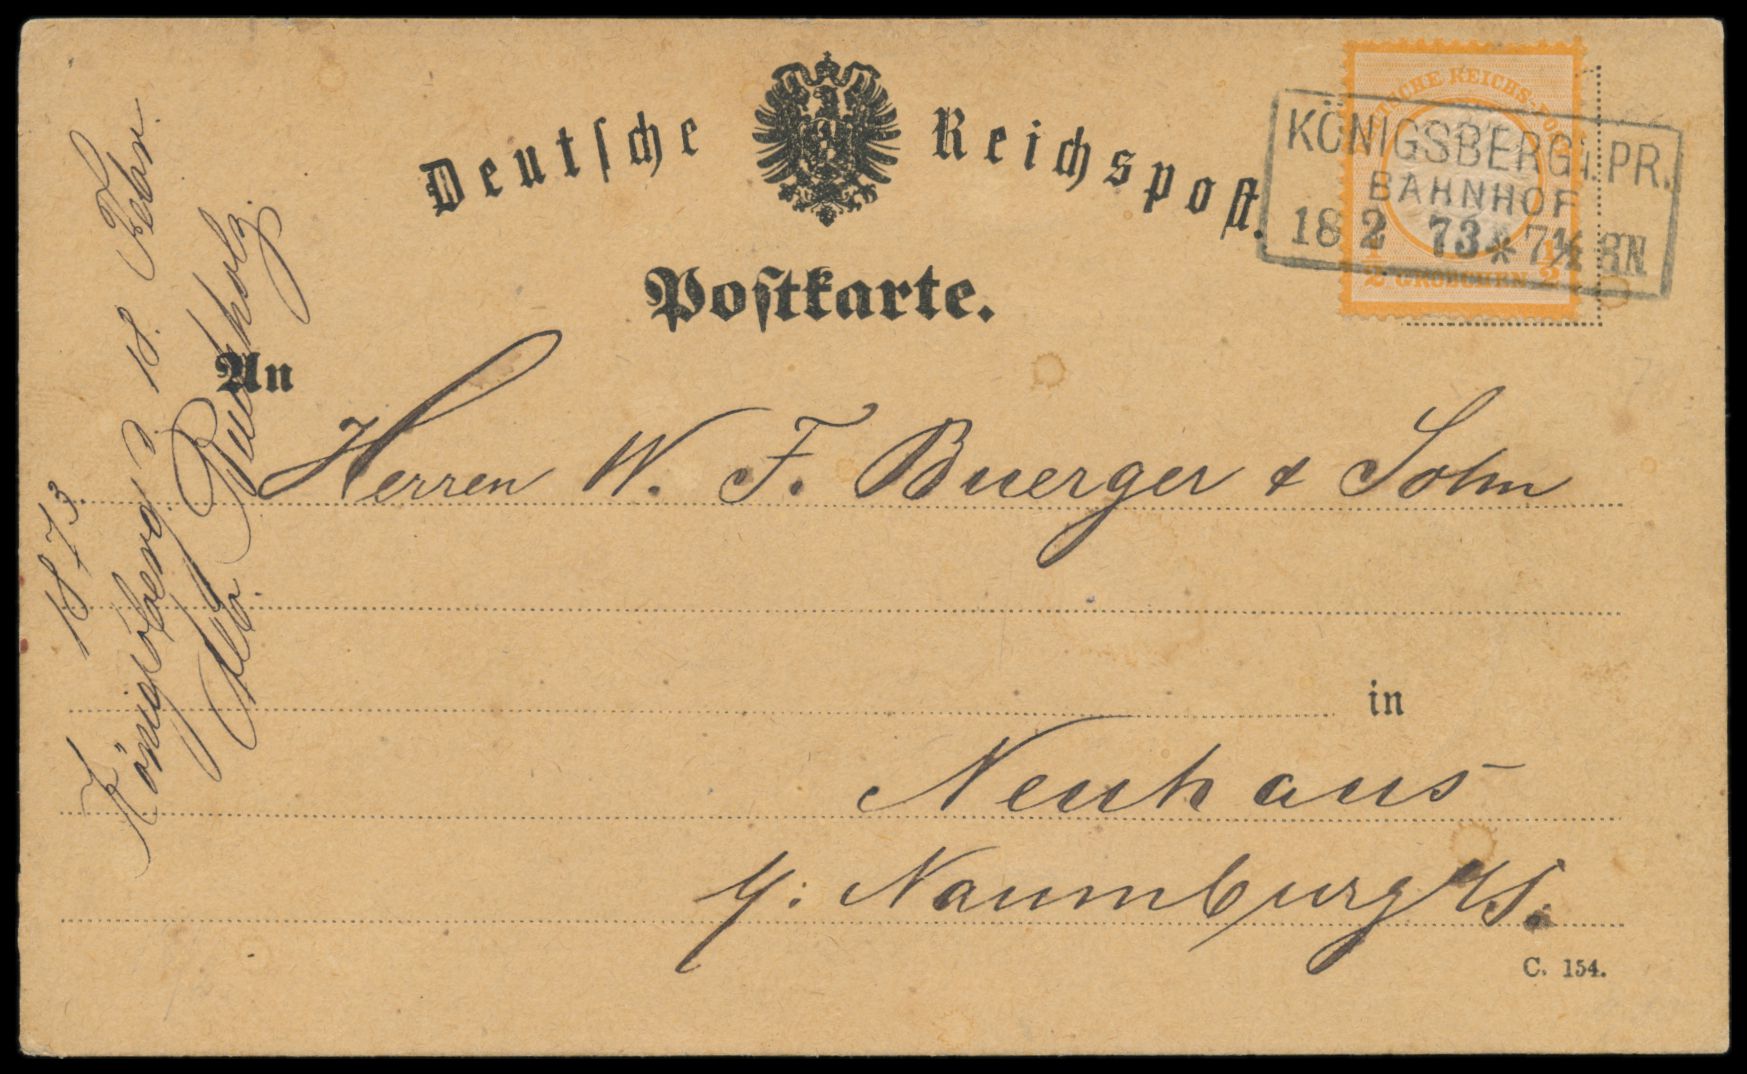 Deutsche Reichspost.
Postkarte.
DEUTSCHE REICHS-POST
1/2 GROSCHEN 1/2
KÖNIGSBERG i. PR.
BAHNHOF
18 2 73 * 7½ RN
An
Herren W. F. Buerger & Sohn
in
Neuhaus
Naumburg a/S.
C. 154.
Königsberg 18. Febr.
1873.
Buchholz.